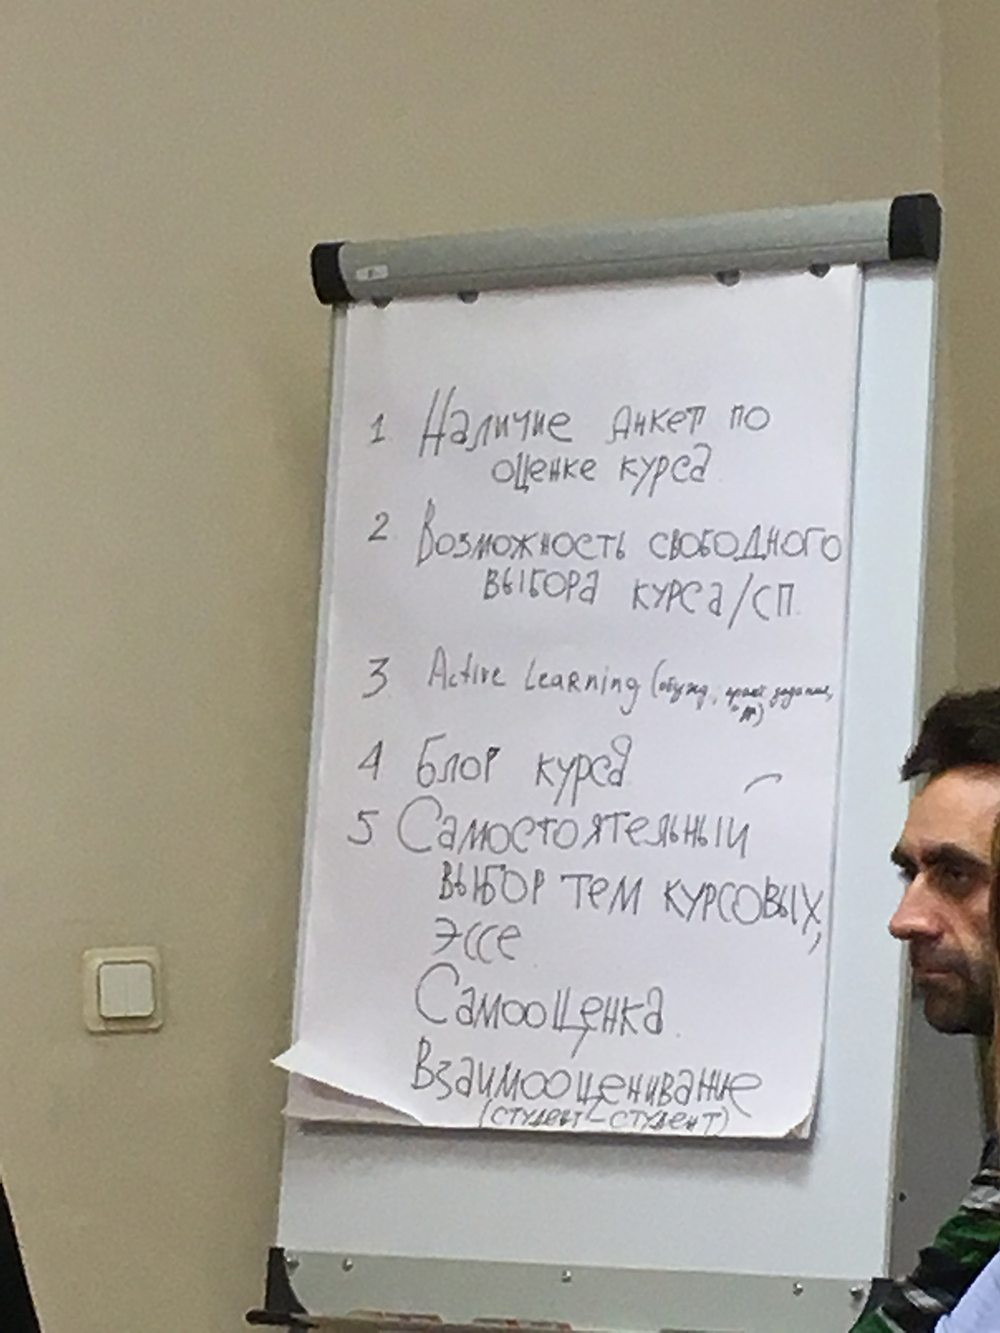 1 Наличие анкет по
оценке курса
2 Возможность свободного
выбора курса/СП.
3 Active Learning (обужд.,
4 Блог курса
5 Самостоятельный
выбор тем курсовых,
эссе
Самооценка.
Взаимооценивание
(студент-студент)